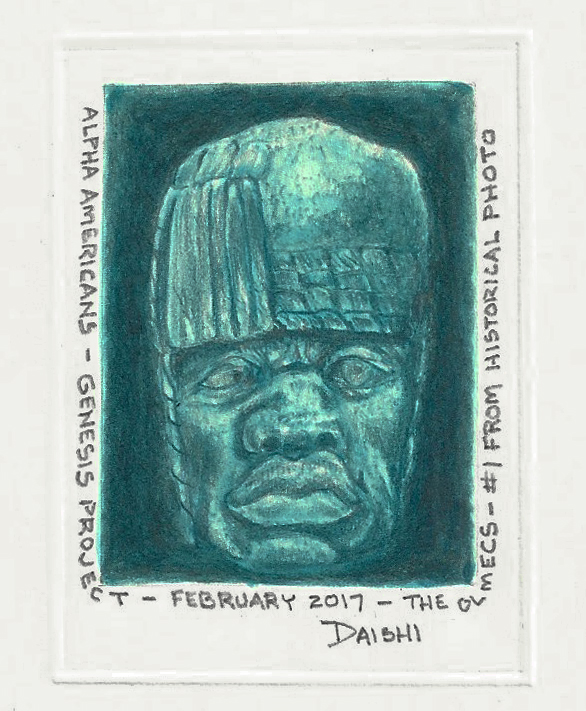 ALPHA AMERICANS - GENESIS PROJECT - FEBRUARY 2017 - THE OLMECS - #1 FROM HISTORICAL PHOTO